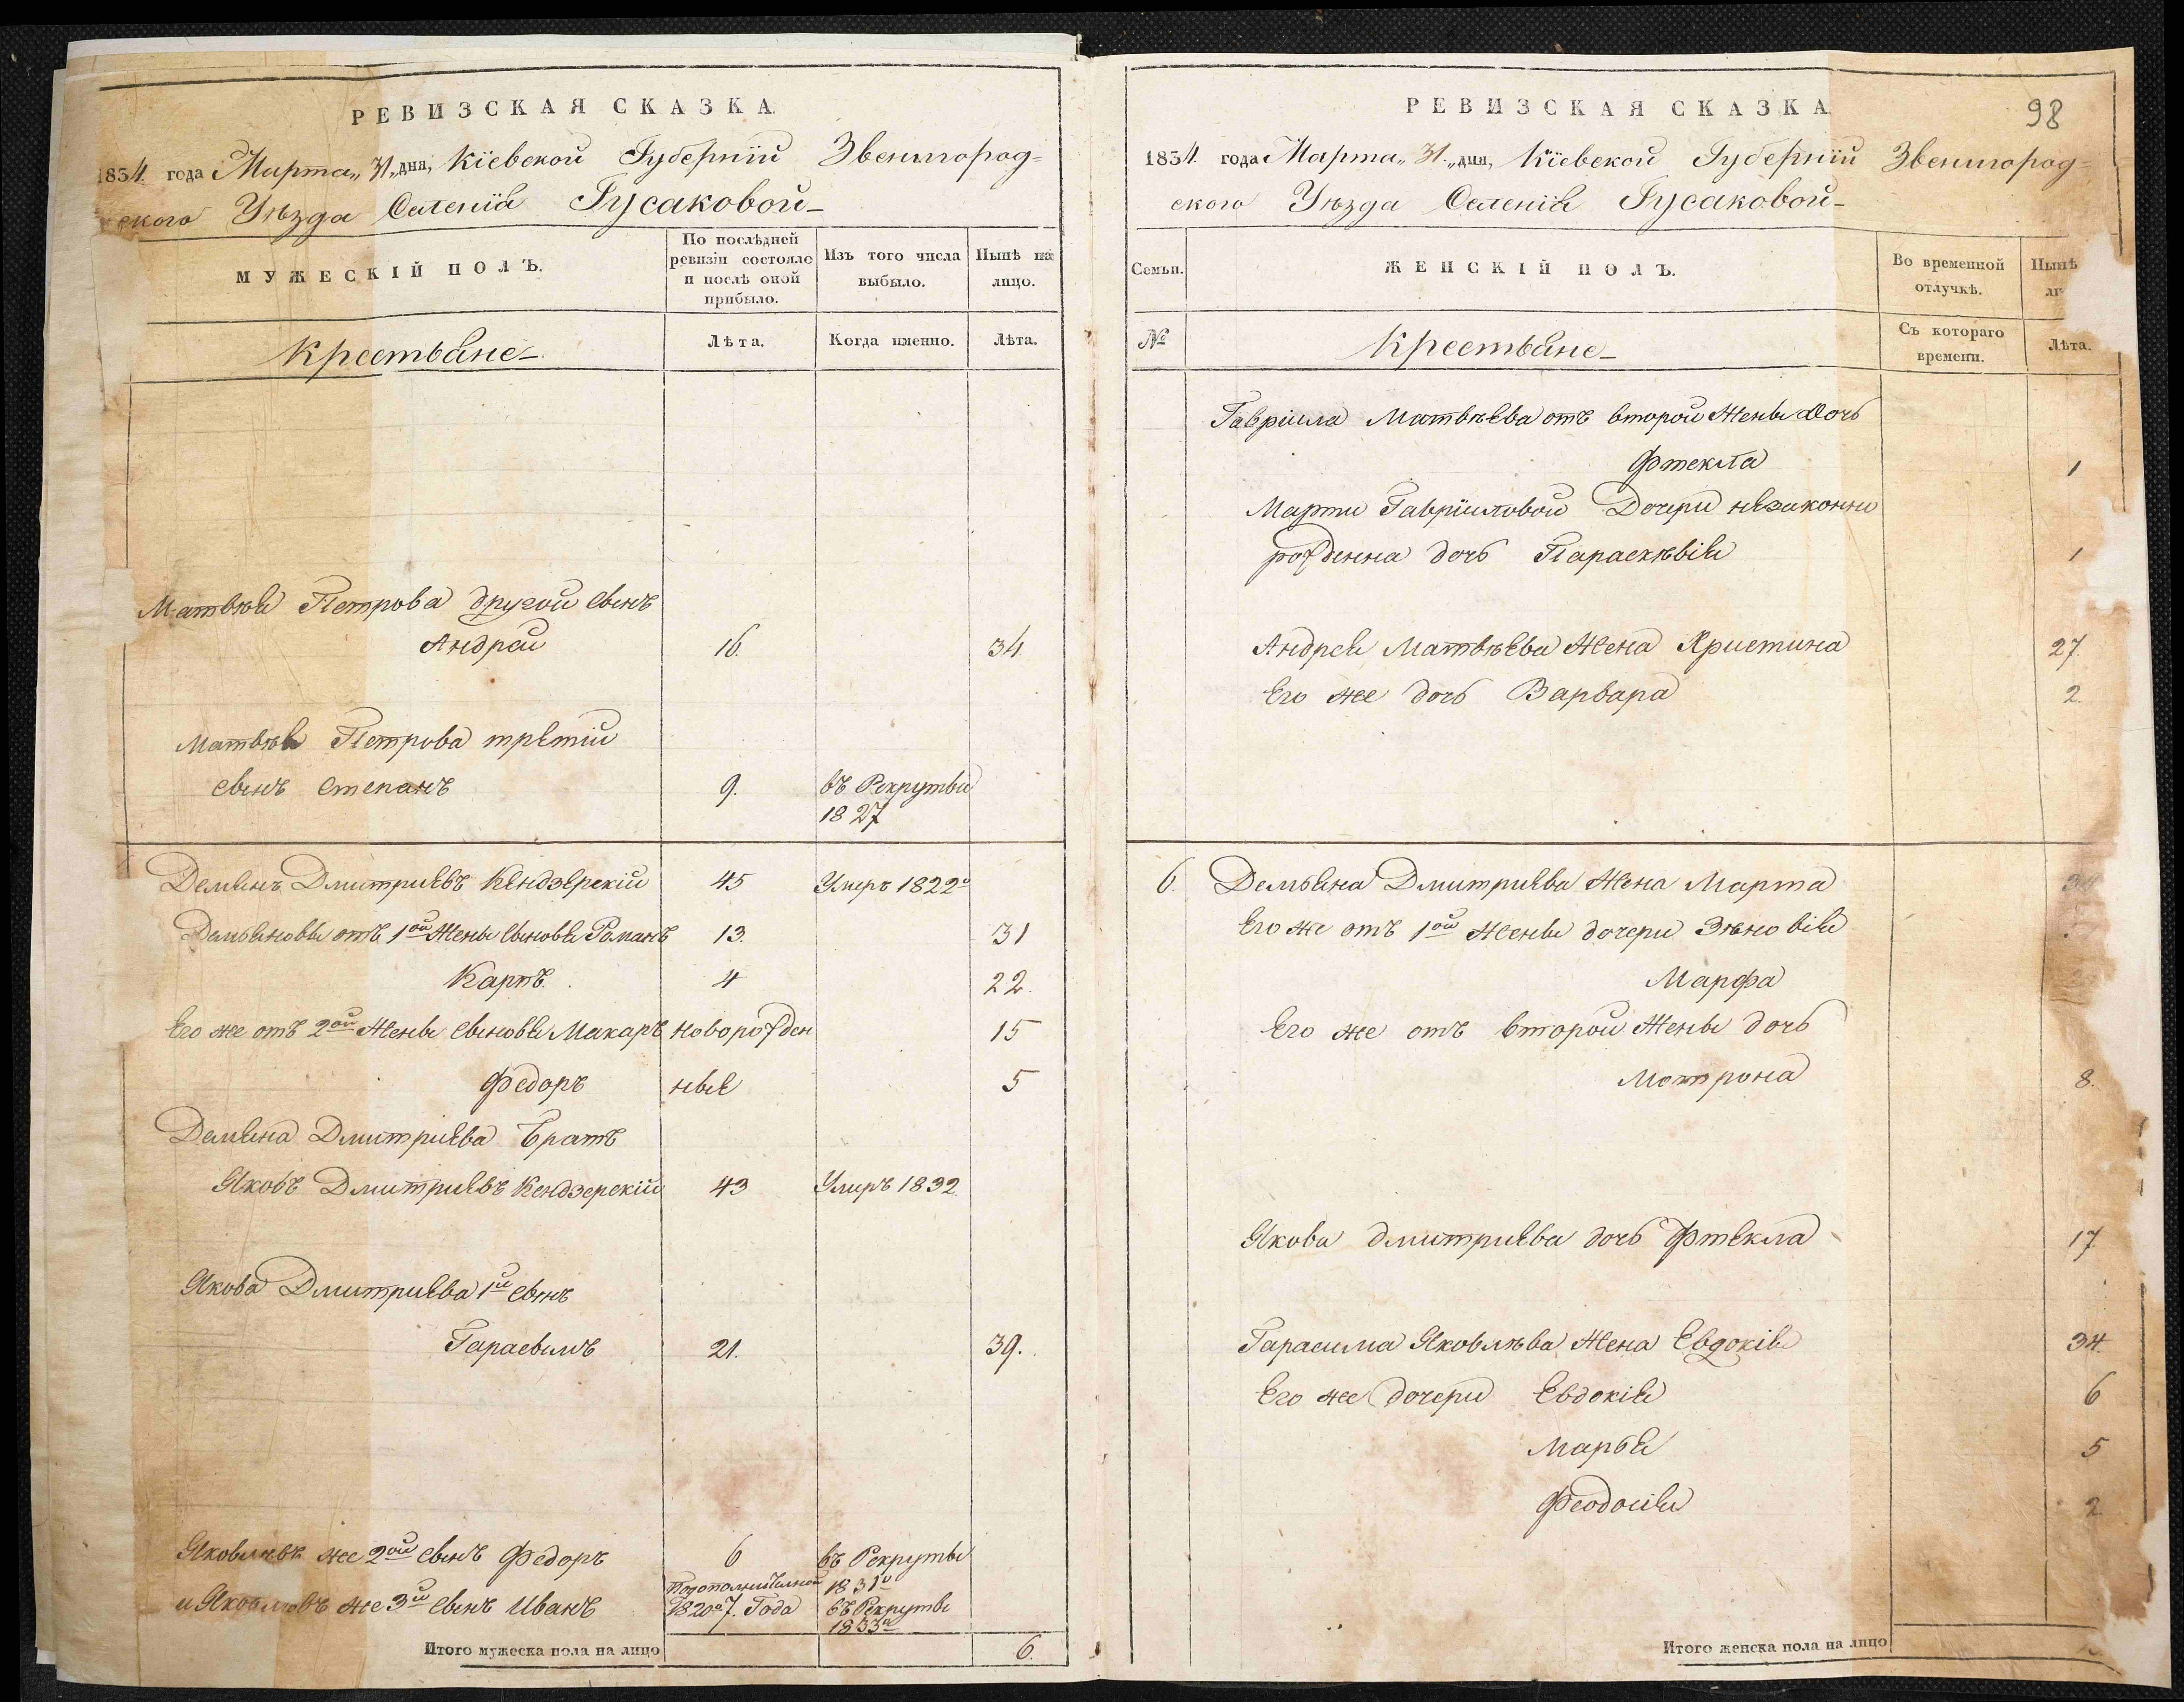 РЕВИЗСКАЯ СКАЗКА
1834. года Марта „31„ дня, Кіевской Губерніи Звенигород=
ского Уѣзда Селенія Гусаковой-
МУЖЕСКІЙ ПОЛЪ.
По послѣдней ревизіи состояло и послѣ оной прибыло.
Изъ того числа выбыло.
Нынѣ на лицо.
Крестьяне-
Лѣта.
Когда именно.
Лѣта.
Матвѣя Петрова другой сынъ
Андрей 16. 34
Матвѣя Петрова третій
сынъ Степанъ 9. въ Рекруты
1827
Демянъ Дмитріевъ Кендзерскій 45 Умеръ 1822
Демьяновы отъ 1ой Жены сыновья Романъ 13. 31
Карпъ. 4 22.
Его же отъ 2ой Жены сыновья Макаръ новорожден 15
Федоръ ныя 5
Демяна Дмитріева Братъ
Яковъ Дмитріевъ Кендзерскій 43 Умеръ 1832.
Якова Дмитріева 1й сынъ
Гарасымъ 21. 39.
же 2ой сынъ Федоръ 6 въ Рекруты
1831
же 3й сынъ Иванъ 7. Года въ Рекруты
1833
Итого мужеска пола на лицо 6.
98
РЕВИЗСКАЯ СКАЗКА
1834. года Марта „31.„ дня, Кіевской Губерніи Звенигород=
ского Уѣзда Селенія Гусаковой-
Семьи.
ЖЕНСКІЙ ПОЛЪ.
Во временной отлучкѣ.
Нынѣ
№
Крестьяне-
Съ котораго времени.
Лѣта.
Гавріила Матвѣева отъ второй Жены Дочь
Фтекла 1
Марти Гавріиловой Дочери незаконно
рожденна дочь Параскѣвія 1
Андрея Матвѣева Жена Христина 27.
Его же дочь Варвара 2.
6. Демьяна Дмитріева Жена Марта
Его же отъ 1ой Жены дочери Зѣновія
Марфа
Его же отъ второй Жены дочь
Мотрона 8.
Якова дмитріева дочь Фтекла 17
Гарасима Яковлѣва Жена Евдокія 34.
Его же дочери Евдокія 6
Марья 5
Феодосія 2
Итого женска пола на лицо